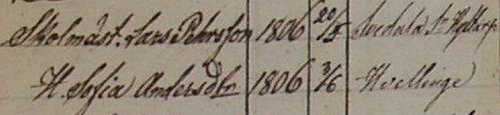 Skolmäst. Lars Pehrsson 1806 20/5 Svedala
H. Sofia Andersdtr 1806 3/6 Hvellinge